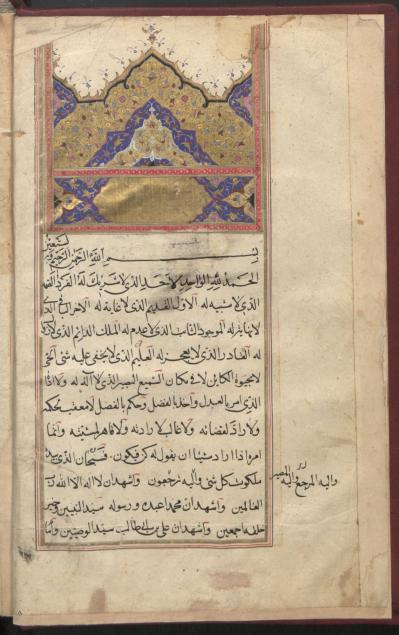 نستعين
بسم الله الرحمن الرحيم وبه
الحمد لله الواحد الاحد الذي لا شريك له الفرد الصمد
الذي لا شبيه له الاول القديم الذي لا غاية له الآخر الباقي الذي
لا نهاية له الموجود الثابت الذي لا عدم له الملك الدائم الذي لا زوال
له القادر الذي لا يعجزه العليم الذي لا يخفى عليه شئ الحي
لا بحيوة الكاين لا في مكان السميع البصير الذي لا آلة له ولا اداة
الذي امر بالعدل واخذ بالفضل وحكم بالفصل لا معقب لحكمه
ولا راد لقضائه ولا غالب لارادته ولا قاهر لمشيته وانما
امره اذا اراد شيئا ان يقول له كن فيكون فسبحان الذي بيده
ملكوت كل شئ واليه ترجعون واشهد ان لا اله الا الله رب
العالمين واشهد ان محمدا عبده ورسوله سيد النبيين وخير
خلقه اجمعين واشهد ان علي بن ابي طالب سيد الوصيين وامام
واليه المرجع واليه المصير